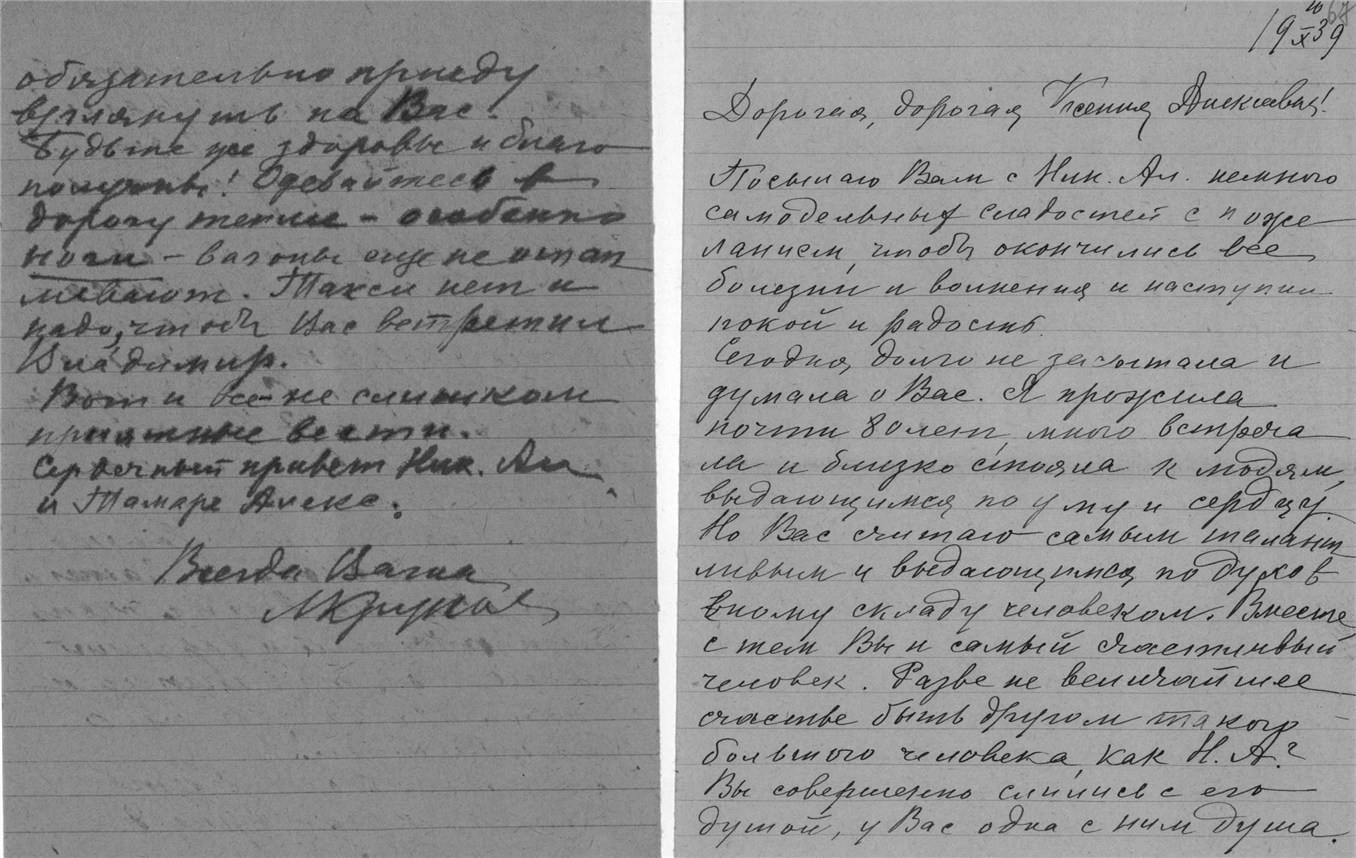 обязательно приеду
взглянуть на Вас.
Будьте же здоровы и благо
получны! Одевайтесь в
дорогу теплее – особенно
ноги – вагоны еще не отап
ливают. Такси нет и
надо, чтобы Вас встретил
Владимир.
Вот и все не слишком
приятные вести.
Сердечный привет Ник. Ал.
и Тамаре Алекс.
Всегда Ваша
67
19 X 39
Дорогая, дорогая Ксения Алексеевна!
Посылаю Вам с Ник. Ал. немного
самодельных сладостей с поже
ланием, чтобы окончились все
болезни и волнения и наступили
покой и радость.
Сегодня долго не засыпала и
думала о Вас. Я прожила
почти 80 лет, много встреча
ла и близко стояла к людям,
выдающимся по уму и сердцу.
Но Вас считаю самым талант
ливым и выдающимся по духов
ному складу человеком. Вместе
с тем Вы и самый счастливый
человек. Разве не величайшее
счастье быть другом такого
большого человека, как Н. А.?
Вы совершенно слились с его
душой, у Вас одна с ним душа.